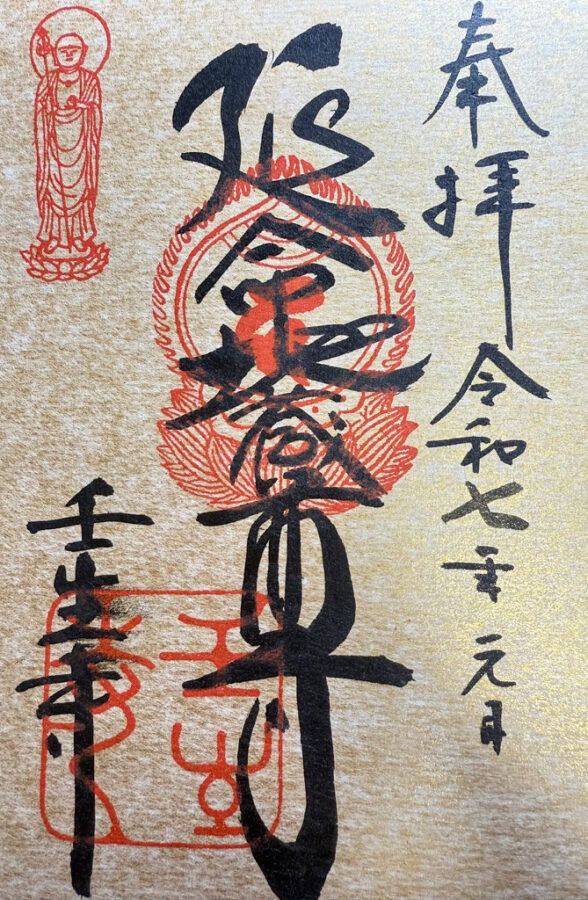 奉拝
令和七年 元日
延命地蔵尊
壬生寺